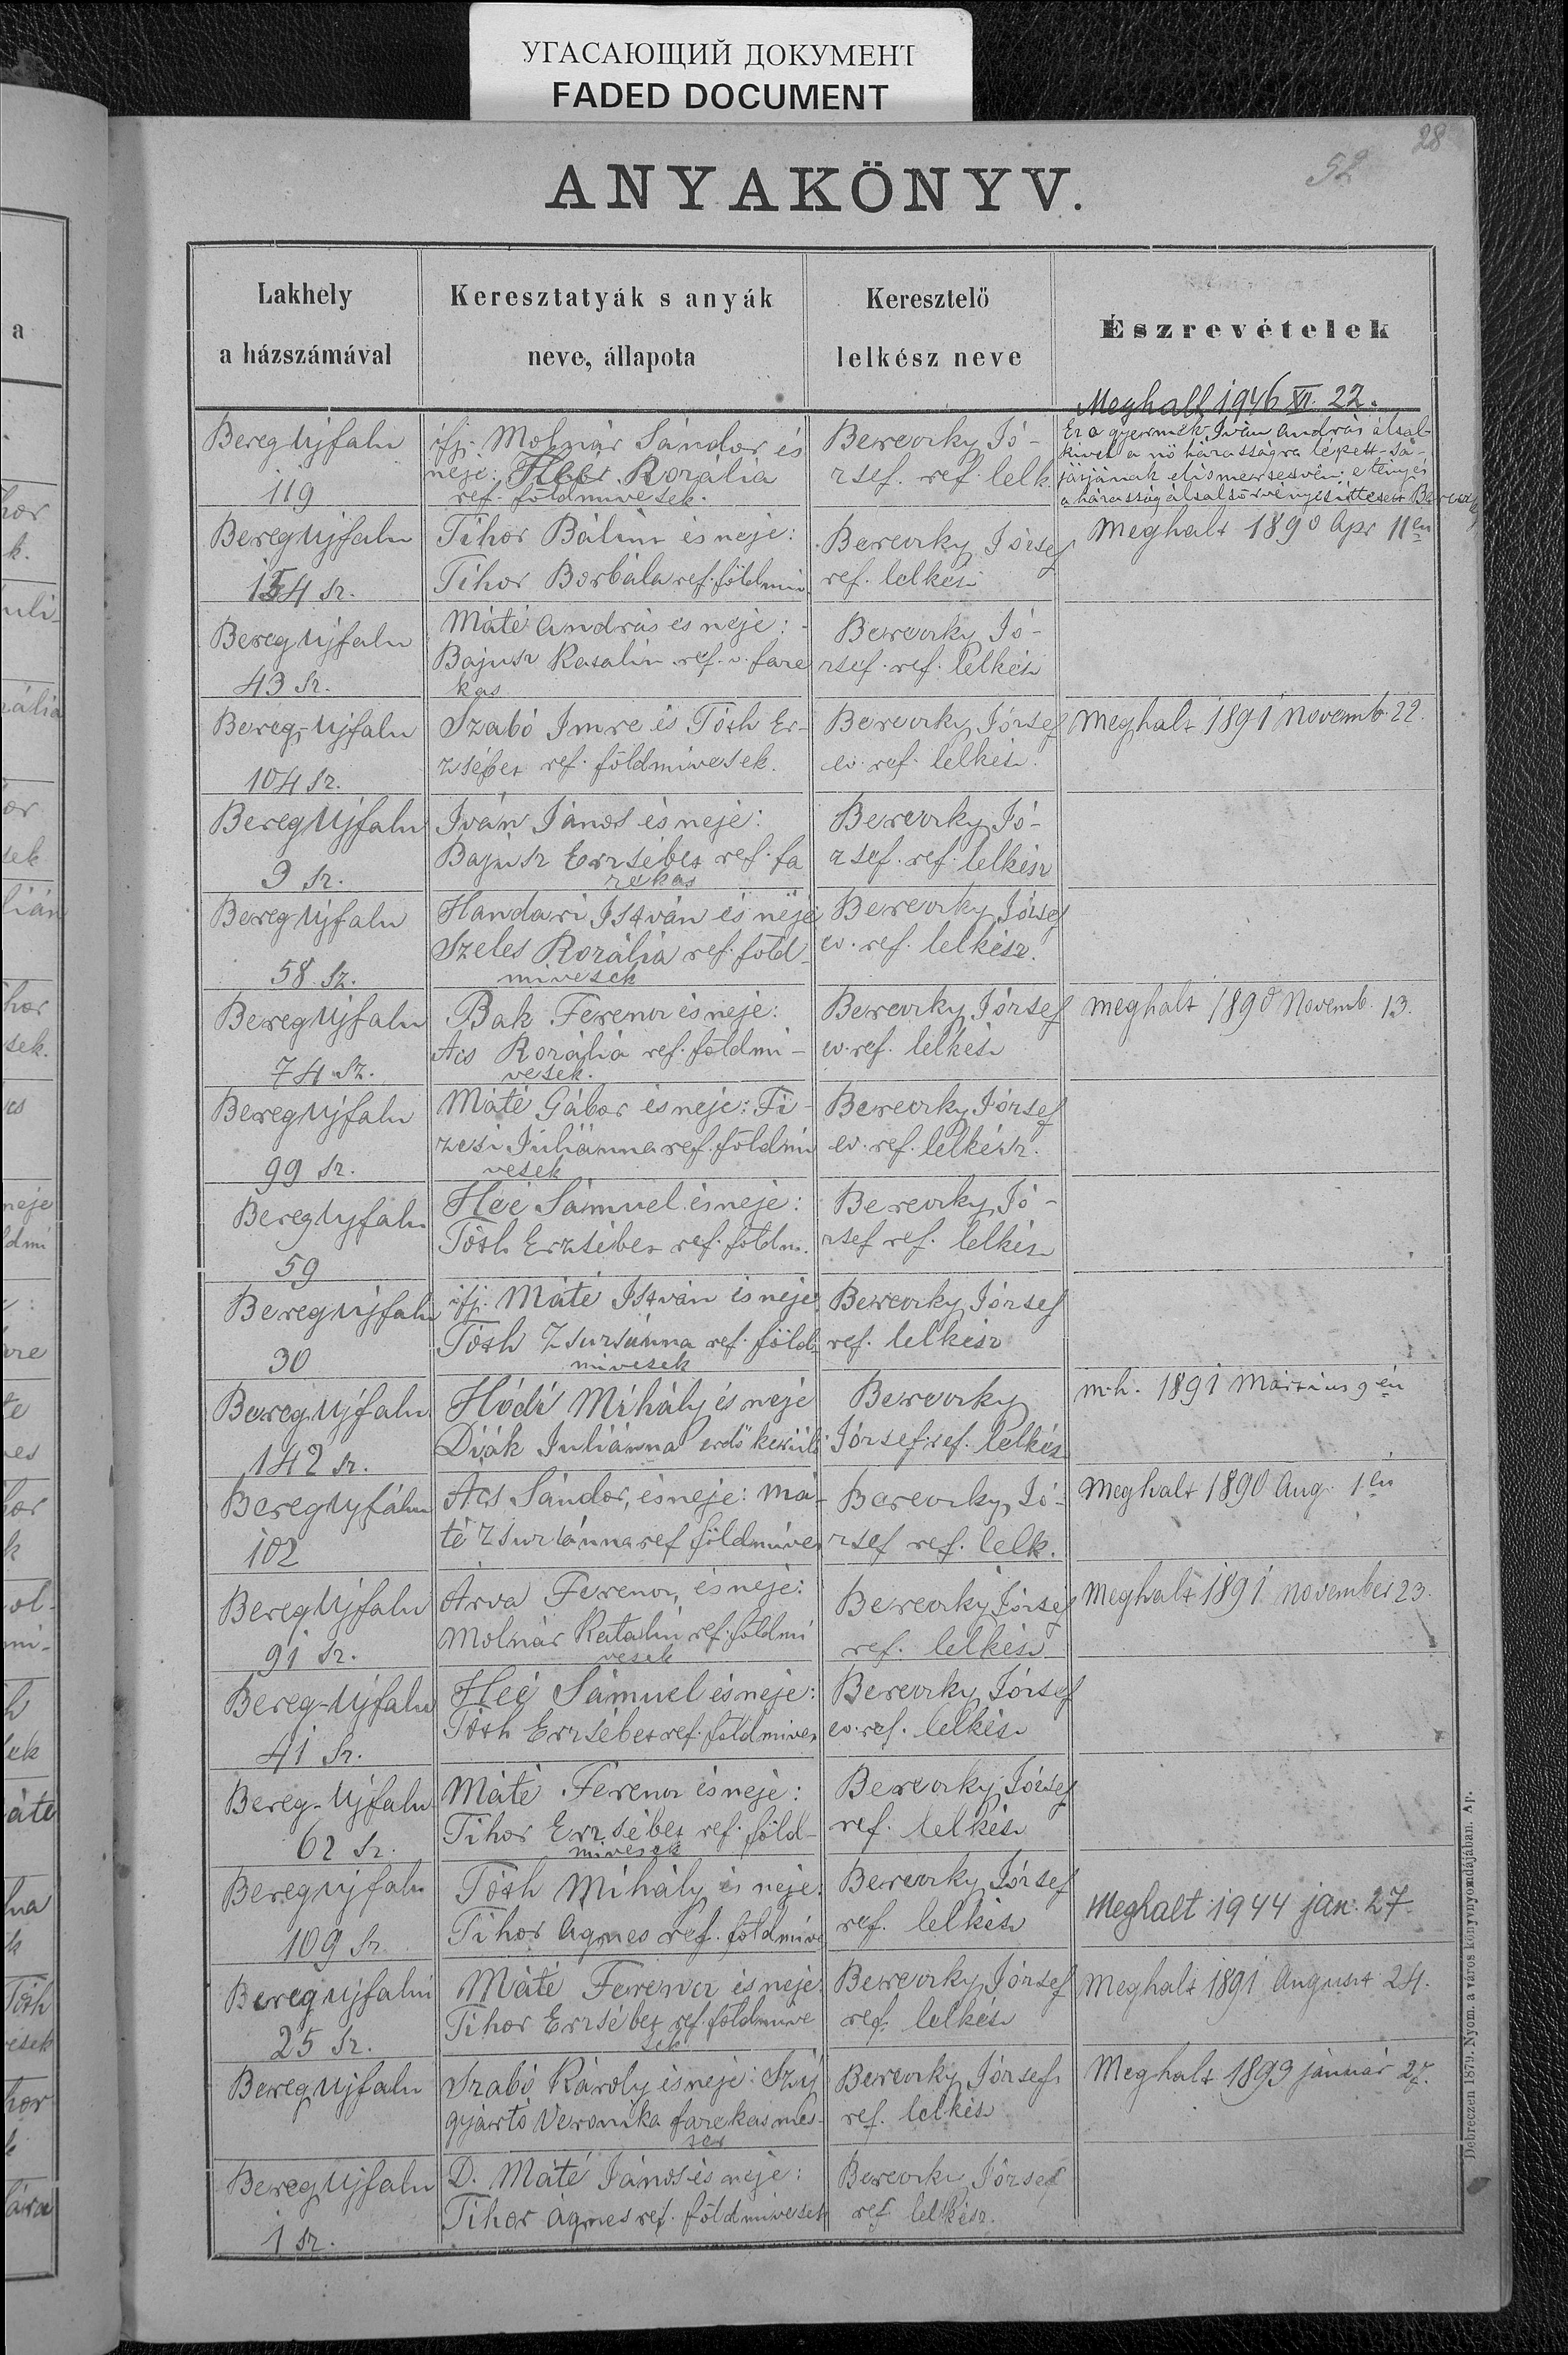 УГАСАЮЩИЙ ДОКУМЕНТ
FADED DOCUMENT
28
52
ANYAKÖNYV.
Lakhely
a házszámával
Keresztatyák s anyák
neve, állapota
Keresztelő
lelkész neve
Észrevételek
Meghalt 1946 XI. 22.
Bereg Ujfalu
119
ifj. Molnár Sándor és
neje: Rozália
ref. földmivesek.
Bereczky Jó-
zsef. ref. lelk.
Ez a gyermek Iván András által
kivel a nő házasságra lépett
a házasság által törvényesittetett
Bereg Ujfalu
154 sz.
Tihor Bálint és neje:
Tihor Borbála ref. földmiv.
Bereczky József
ref. lelkész
Meghalt 1890 Apr 11én
Bereg Ujfalu
43 sz.
Máté András és neje:
Bajusz Katalin ref. v. faze
kas
Bereczky Jó-
zsef. ref. lelkész
Bereg-Ujfalu
104 sz.
Szabó Imre és Tóth Er-
zsébet ref. földmivesek.
Bereczky József
ev. ref. lelkész.
Meghalt 1891 Novemb. 22.
Bereg Ujfalu
9 sz.
Iván János és neje:
Bajusz Erzsébet ref. fa
zekas
Bereczky Jó-
zsef. ref. lelkész
Bereg Ujfalu
58 sz.
Handari István és neje
Szeles Rozália ref. föld-
mivesek
Bereczky József
ev. ref. lelkész.
Bereg Ujfalu
74 sz.
Bak Ferencz és neje:
Acs Rozália ref. földmi-
vesek.
Bereczky József
ev. ref. lelkész
meghalt 1890 Novemb. 13.
Bereg Ujfalu
99 sz.
Máté Gábor és neje: Fi-
zesi Juliánna ref. földmi
vesek
Bereczky József
ev. ref. lelkész.
Bereg Ujfalu
59
Heé Sámuel és neje:
Tóth Erzsébet ref. földm.
Bereczky Jó-
zsef ref. lelkész
Bereg Ujfalu
30
ifj. Máté István és neje
Tóth Zsuzsánna ref. föld-
mivesek
Bereczky József
ref. lelkész
Bereg Ujfalu
142 sz.
Hódi Mihály és neje
Diák Juliánna erdő kerülő
Bereczky
József ref. lelkész
m.h. 1891 Martius 9én
Bereg Ujfalu
102
Acs Sándor, és neje: Má-
té Zsuzsánna ref földmives
Bereczky Jó-
zsef ref. lelk.
Meghalt 1890 Aug. 1én
Bereg Ujfalu
91 sz.
Árva Ferencz, és neje:
Molnár Katalin ref. földmi
vesek
Bereczky József
ref. lelkész
Meghalt 1891 november 23.
Bereg-Ujfalu
41 sz.
Heé Sámuel és neje:
Tóth Erzsébet ref. földmives
Bereczky József
ev. ref. lelkész
Bereg-Ujfalu
62 sz.
Máté Ferencz és neje:
Tihor Erzsébet ref. föld-
mivesek
Bereczky József
ref. lelkész
Bereg Ujfalu
109 sz.
Tóth Mihály és neje:
Tihor Ágnes ref. földmive
Bereczky József
ref. lelkész
Meghalt 1944 jan. 27.
Bereg Ujfalu
25 sz.
Máté Ferencz és neje
Tihor Erzsébet ref. földmive
sek
Bereczky József
ref. lelkész
Meghalt 1891 Auguszt 24.
Bereg Ujfalu
Szabó Károly és neje: Szij
gyártó Veronika fazekas mes-
ter
Bereczky József
ref. lelkész
Meghalt 1893 január 27.
Bereg Ujfalu
1 sz.
D. Máté János és neje:
Tihor Ágnes ref. földmivesek
Bereczky József
ref lelkész.
Debreczen 1879. Nyom. a város könyvnyomdájában. Ap.